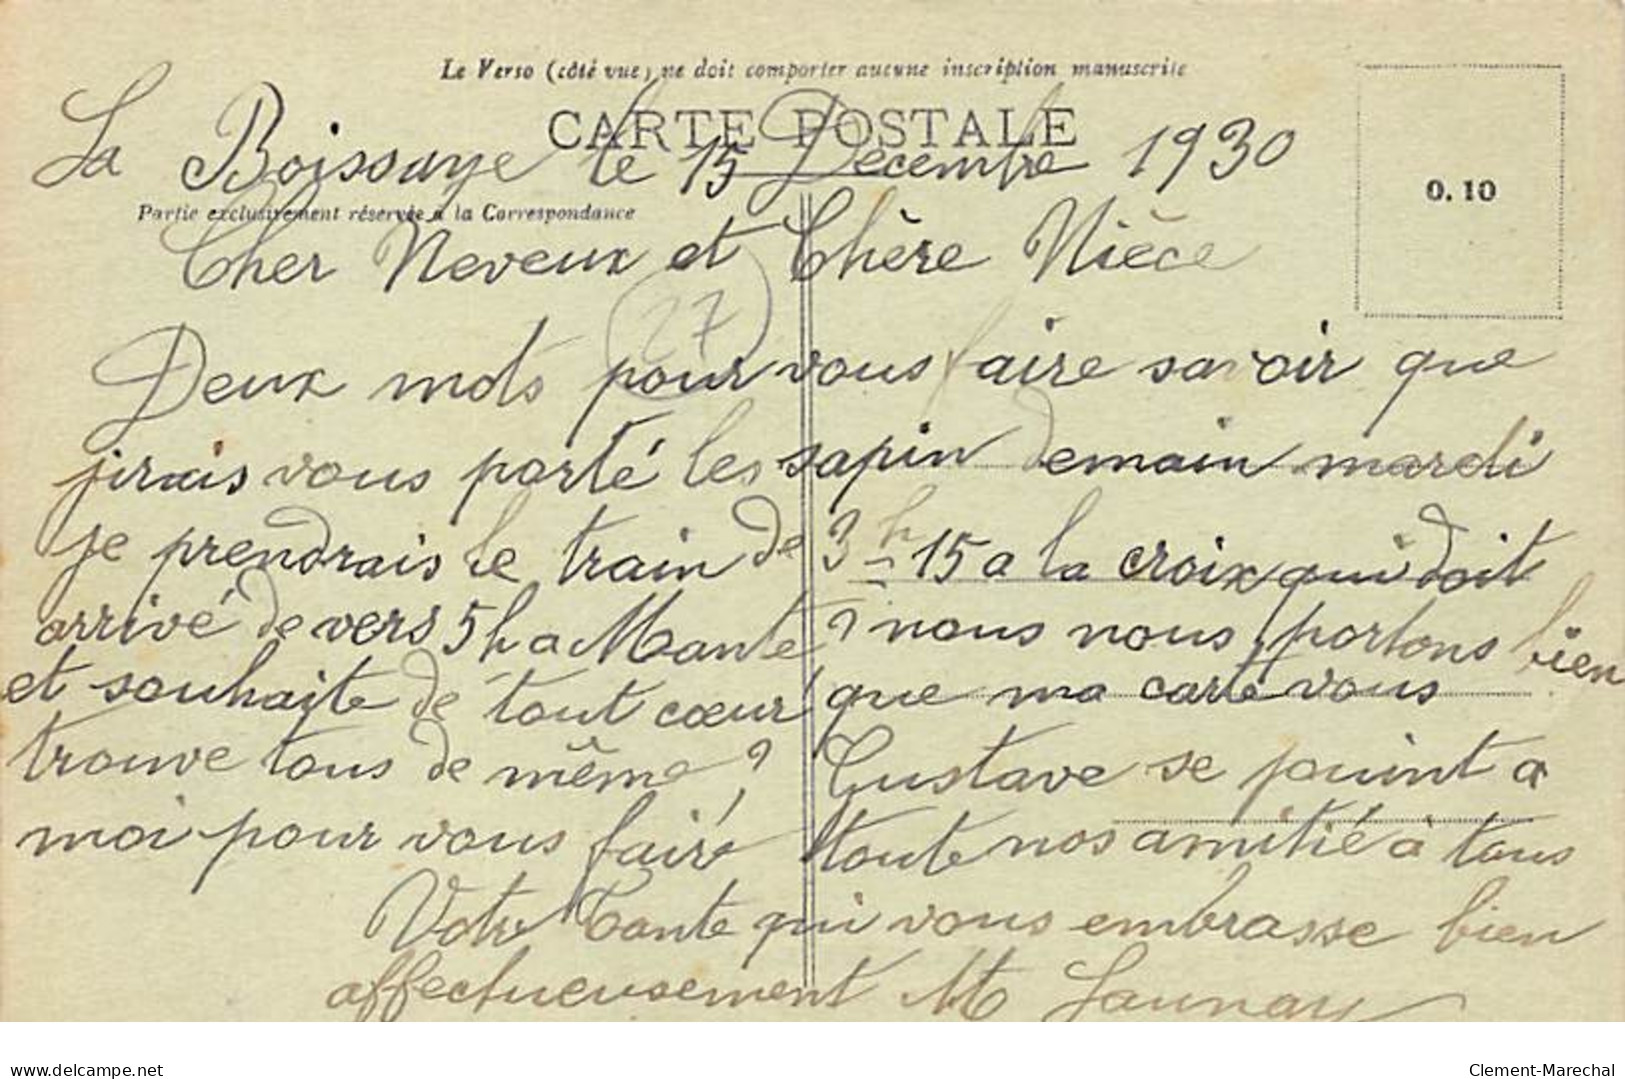 Le Verso (côté vue) ne doit comporter aucune inscription manuscrite
CARTE POSTALE
La Boissaye le 15 Décembre 1930
0.10
Partie exclusivement réservée à la Correspondance
Cher Neveux et Chère Nièce
27
Deux mots pour vous faire savoir que
jirais vous porté les sapin demain mardi
je prendrais le train de 3h 15 a la croix qui doit
arrivé de vers 5h a Mante ? nous nous portons bien
et souhaite de tout cœur que ma carte vous
trouve tous de même ? Gustave se joint a
moi pour vous faire toute nos amitié à tous
Votre Tante qui vous embrasse bien
affectueusement M Launay
www.delcampe.net
Clement-Marechal